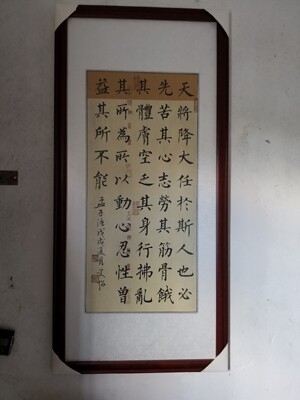 天將降大任於斯人也必
先苦其心志勞其筋骨餓
其體膚空乏其身行拂亂
其所為所以動心忍性曾
益其所不能
孟子语戊戌夏月